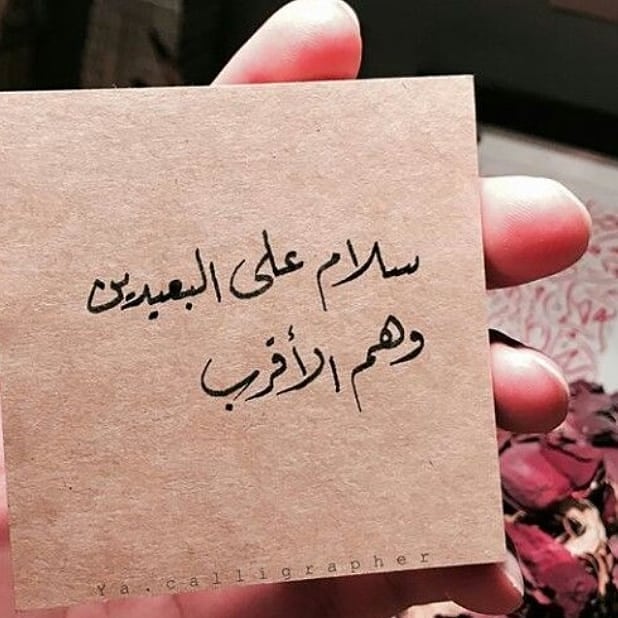 سلام على البعيدين
وهم الأقرب
Ya.calligrapher